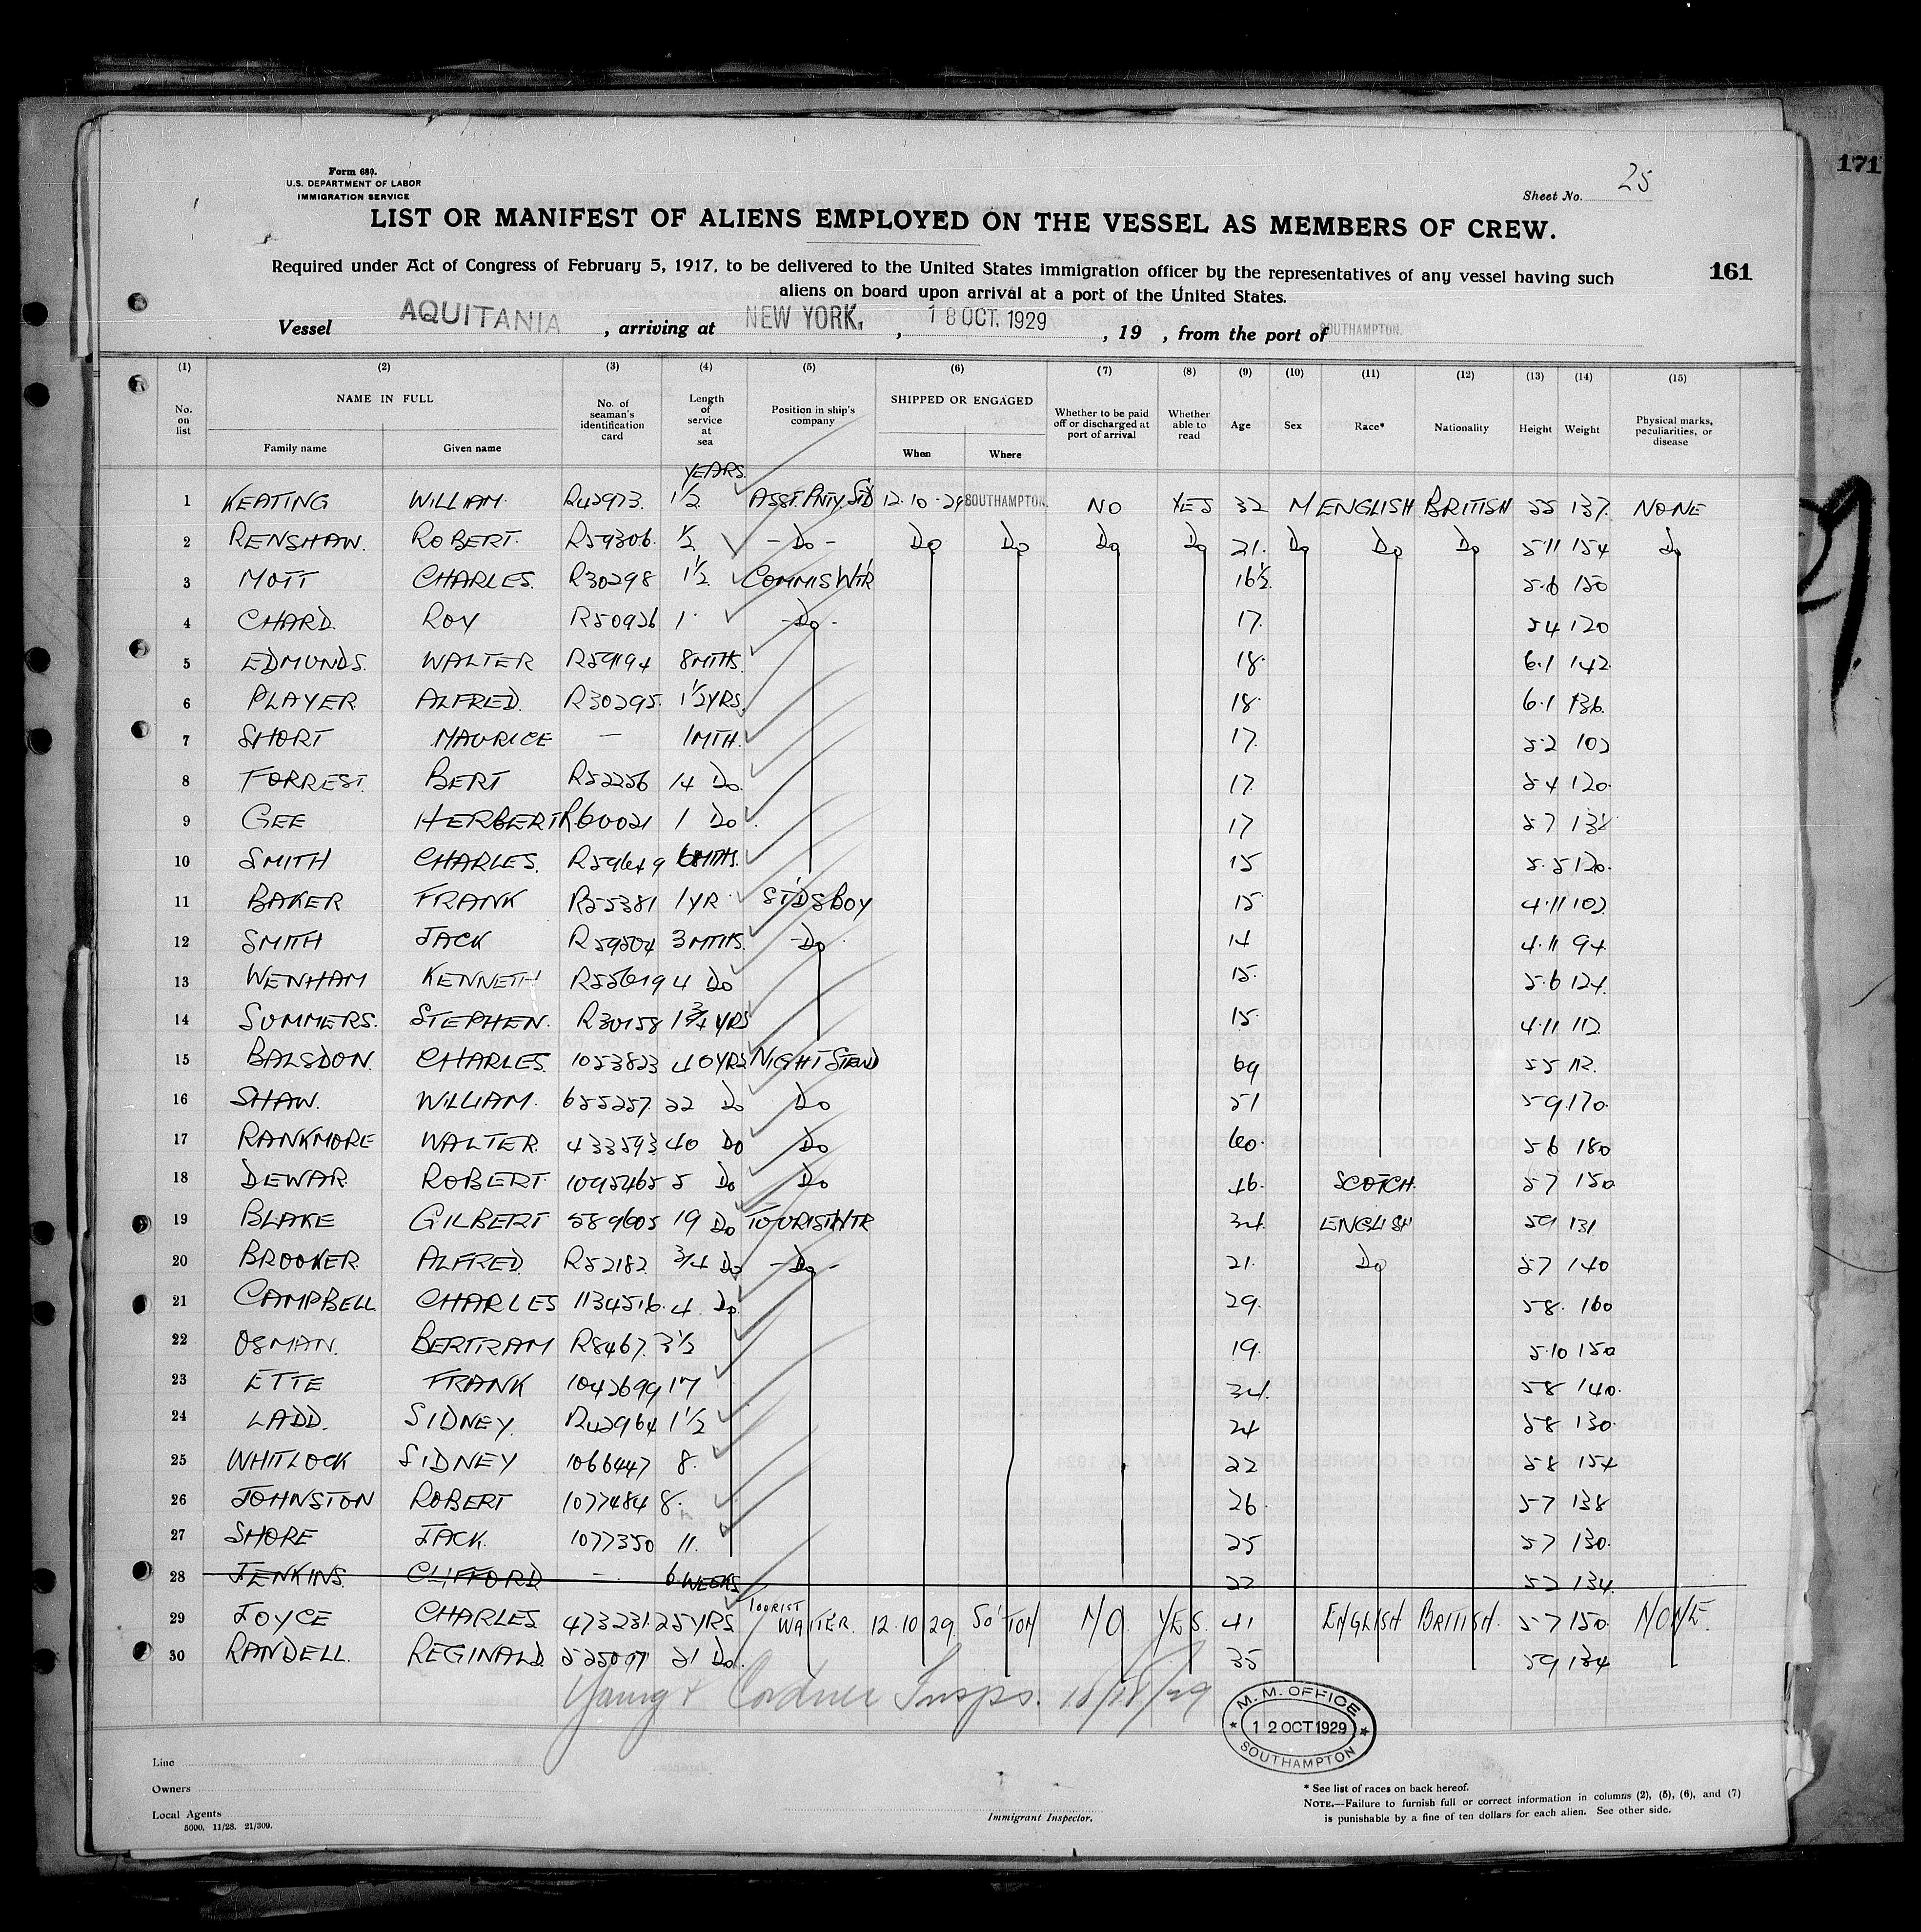 171
Form 680.
U.S. DEPARTMENT OF LABOR
IMMIGRATION SERVICE
Sheet No. 25
LIST OR MANIFEST OF ALIENS EMPLOYED ON THE VESSEL AS MEMBERS OF CREW.
161
Required under Act of Congress of February 5, 1917, to be delivered to the United States immigration officer by the representatives of any vessel having such
aliens on board upon arrival at a port of the United States.
Vessel AQUITANIA , arriving at NEW YORK, , 18 OCT. 1929 , 19 , from the port of SOUTHAMPTON.
(1) (2) (3) (4) (5) (6) (7) (8) (9) (10) (11) (12) (13) (14) (15)
No. on list NAME IN FULL Family name Given name No. of seaman's identification card Length of service at sea Position in ship's company SHIPPED OR ENGAGED When Where Whether to be paid off or discharged at port of arrival Whether able to read Age Sex Race* Nationality Height Weight Physical marks, peculiarities, or disease
YEARS
1 KEATING WILLIAM R42973 1 1/2 ASST. PNTY. STD 12.10.29 SOUTHAMPTON. NO YES 32 M ENGLISH BRITISH 55 137 NONE
2 RENSHAW. ROBERT. R59306. 1/2 - Do - Do Do Do Do 21. Do Do Do 5.11 154 Do
3 MOTT CHARLES. R30298 1 1/2 COMMIS WTR 16 1/2 5.6 150
4 CHARD. ROY R50926 1 - Do - 17. 54 120
5 EDMUNDS. WALTER R59194 8 MTHS. 18. 6.1 142
6 PLAYER ALFRED. R30295. 1 1/2 YRS. 18. 6.1 136.
7 SHORT MAURICE — 1 MTH. 17. 5.2 102
8 FORREST. BERT R52256 14 Do. 17. 54 120.
9 GEE HERBERT R60021 1 Do 17 57
10 SMITH CHARLES. R59649 6 MTHS. 15 5.5 120.
11 BAKER FRANK R55381 1 YR STDS BOY 15. 4.11 102
12 SMITH JACK R59504 3 MTHS. - Do 14 4.11 94
13 WENHAM KENNETH R55619 4 Do 15. 5.6 124.
14 SUMMERS. STEPHEN. R30158 1 3/4 YRS 15. 4.11 112
15 BALSDON. CHARLES. 1053823 40 YRS NIGHT STEWD 69 55 112.
16 SHAW. WILLIAM. 655257 22 Do Do 51 59 170.
17 RANKMORE WALTER. 433593 40 Do Do 60. 56 180
18 DEWAR ROBERT. 1095465 5 Do Do 46. SCOTCH. 57 150
19 BLAKE GILBERT 589605 19 Do TOURIST WTR 34. ENGLISH 59 131
20 BROOKER ALFRED. R52182. 3/4 Do - Do - 21. Do 57 140
21 CAMPBELL CHARLES 1134516. 4 Do. 29. 58. 160
22 OSMAN. BERTRAM R8467. 3 1/2 19. 5.10 150
23 ETTE FRANK 1042699 17 34. 58 140.
24 LADD. SIDNEY. R42964 1 1/2 24 58 130.
25 WHITLOCK SIDNEY 1066447 8. 22 58 154
26 JOHNSTON ROBERT 1077484 8. 26. 57 138
27 SHORE JACK. 1077350 11. 25 57 130.
28 JENKINS. CLIFFORD — 6 WEEKS 22 52 134.
29 JOYCE CHARLES 473231 25 YRS TOURIST WAITER. 12.10.29. SO'TON NO YES. 41 ENGLISH BRITISH. 57 150. NONE.
30 RANDELL. REGINALD. 21 Do. 35 59 134
Young & Cordner Insps. 10/18/29
M. M. OFFICE
12 OCT 1929
SOUTHAMPTON
Line
Owners
Local Agents
5000. 11/28. 21/309.
Immigrant Inspector.
* See list of races on back hereof.
NOTE.—Failure to furnish full or correct information in columns (2), (5), (6), and (7)
is punishable by a fine of ten dollars for each alien. See other side.